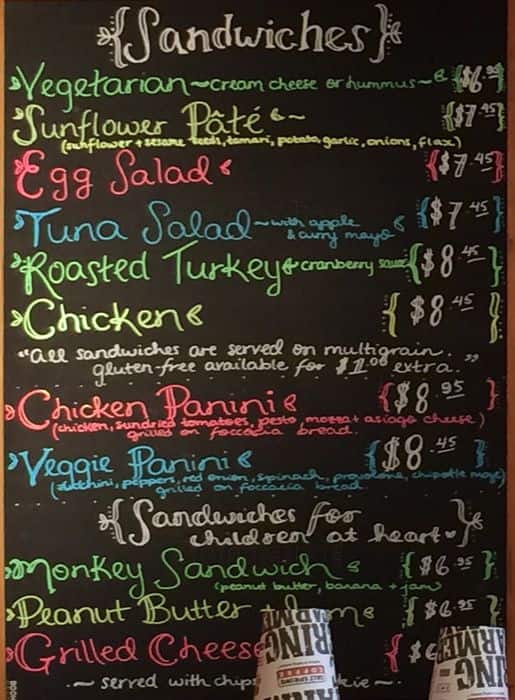 {Sandwiches}
Vegetarian ~cream cheese or hummus~ {$6.95}
Sunflower Pâté ~ {$7.45}
(sunflower + sesame seeds, tamari, potato, garlic, onions, flax)
Egg Salad {$7.45}
Tuna Salad ~with apple {$7.45}
& curry mayo
Roasted Turkey cranberry sauce {$8.45}
Chicken {$8.45}
"All sandwiches are served on multigrain.
gluten-free available for $1.00 extra."
Chicken Panini {$8.95}
(chicken, sundried tomatoes, pesto, mozza + asiago cheese)
grilled on foccacia bread.
Veggie Panini {$8.45}
(zucchini, peppers, red onion, spinach, provolone, chipotle mayo)
grilled on foccacia bread.
{Sandwiches for
children at heart}
Monkey Sandwich {$6.95}
(peanut butter, banana + jam)
Peanut Butter {$6.95}
Grilled Cheese {$6
~ served with chips
SALT SPRING
COFFEE